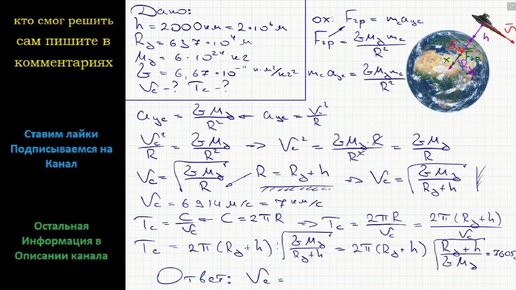 кто смог решить
сам пишите в
комментариях
Ставим лайки
Подписываемся на
Канал
Остальная
Информация в
Описании канала
Дано:
h = 2000км = 2·10⁶м
Rз = 637·10⁴м
Mз = 6·10²⁴кг
G = 6,67·10⁻¹¹ н·м²/кг²
Vc - ? Tc - ?
ox: Fгр = mcaцс
Fгр = GMзmc/R²
mcaцс = GMзmc/R²
h
aцс = GMз/R² ← aцс = Vc²/R
Vc²/R = GMз/R² ⇒ Vc² = GMз·R/R² = GMз/R
Vc = √(GMз/R) R = Rз + h ⇒ Vc = √(GMз/(Rз + h))
Vc = 6914 м/с = 7км/с
Tc = C/Vc ← C = 2πR ⇒ Tc = 2πR/Vc = 2π(Rз + h)/Vc
Tc = 2π(Rз + h) : √(GMз/(Rз + h)) = 2π(Rз + h)√((Rз + h)/GMз) = 7605
Ответ: Vc =